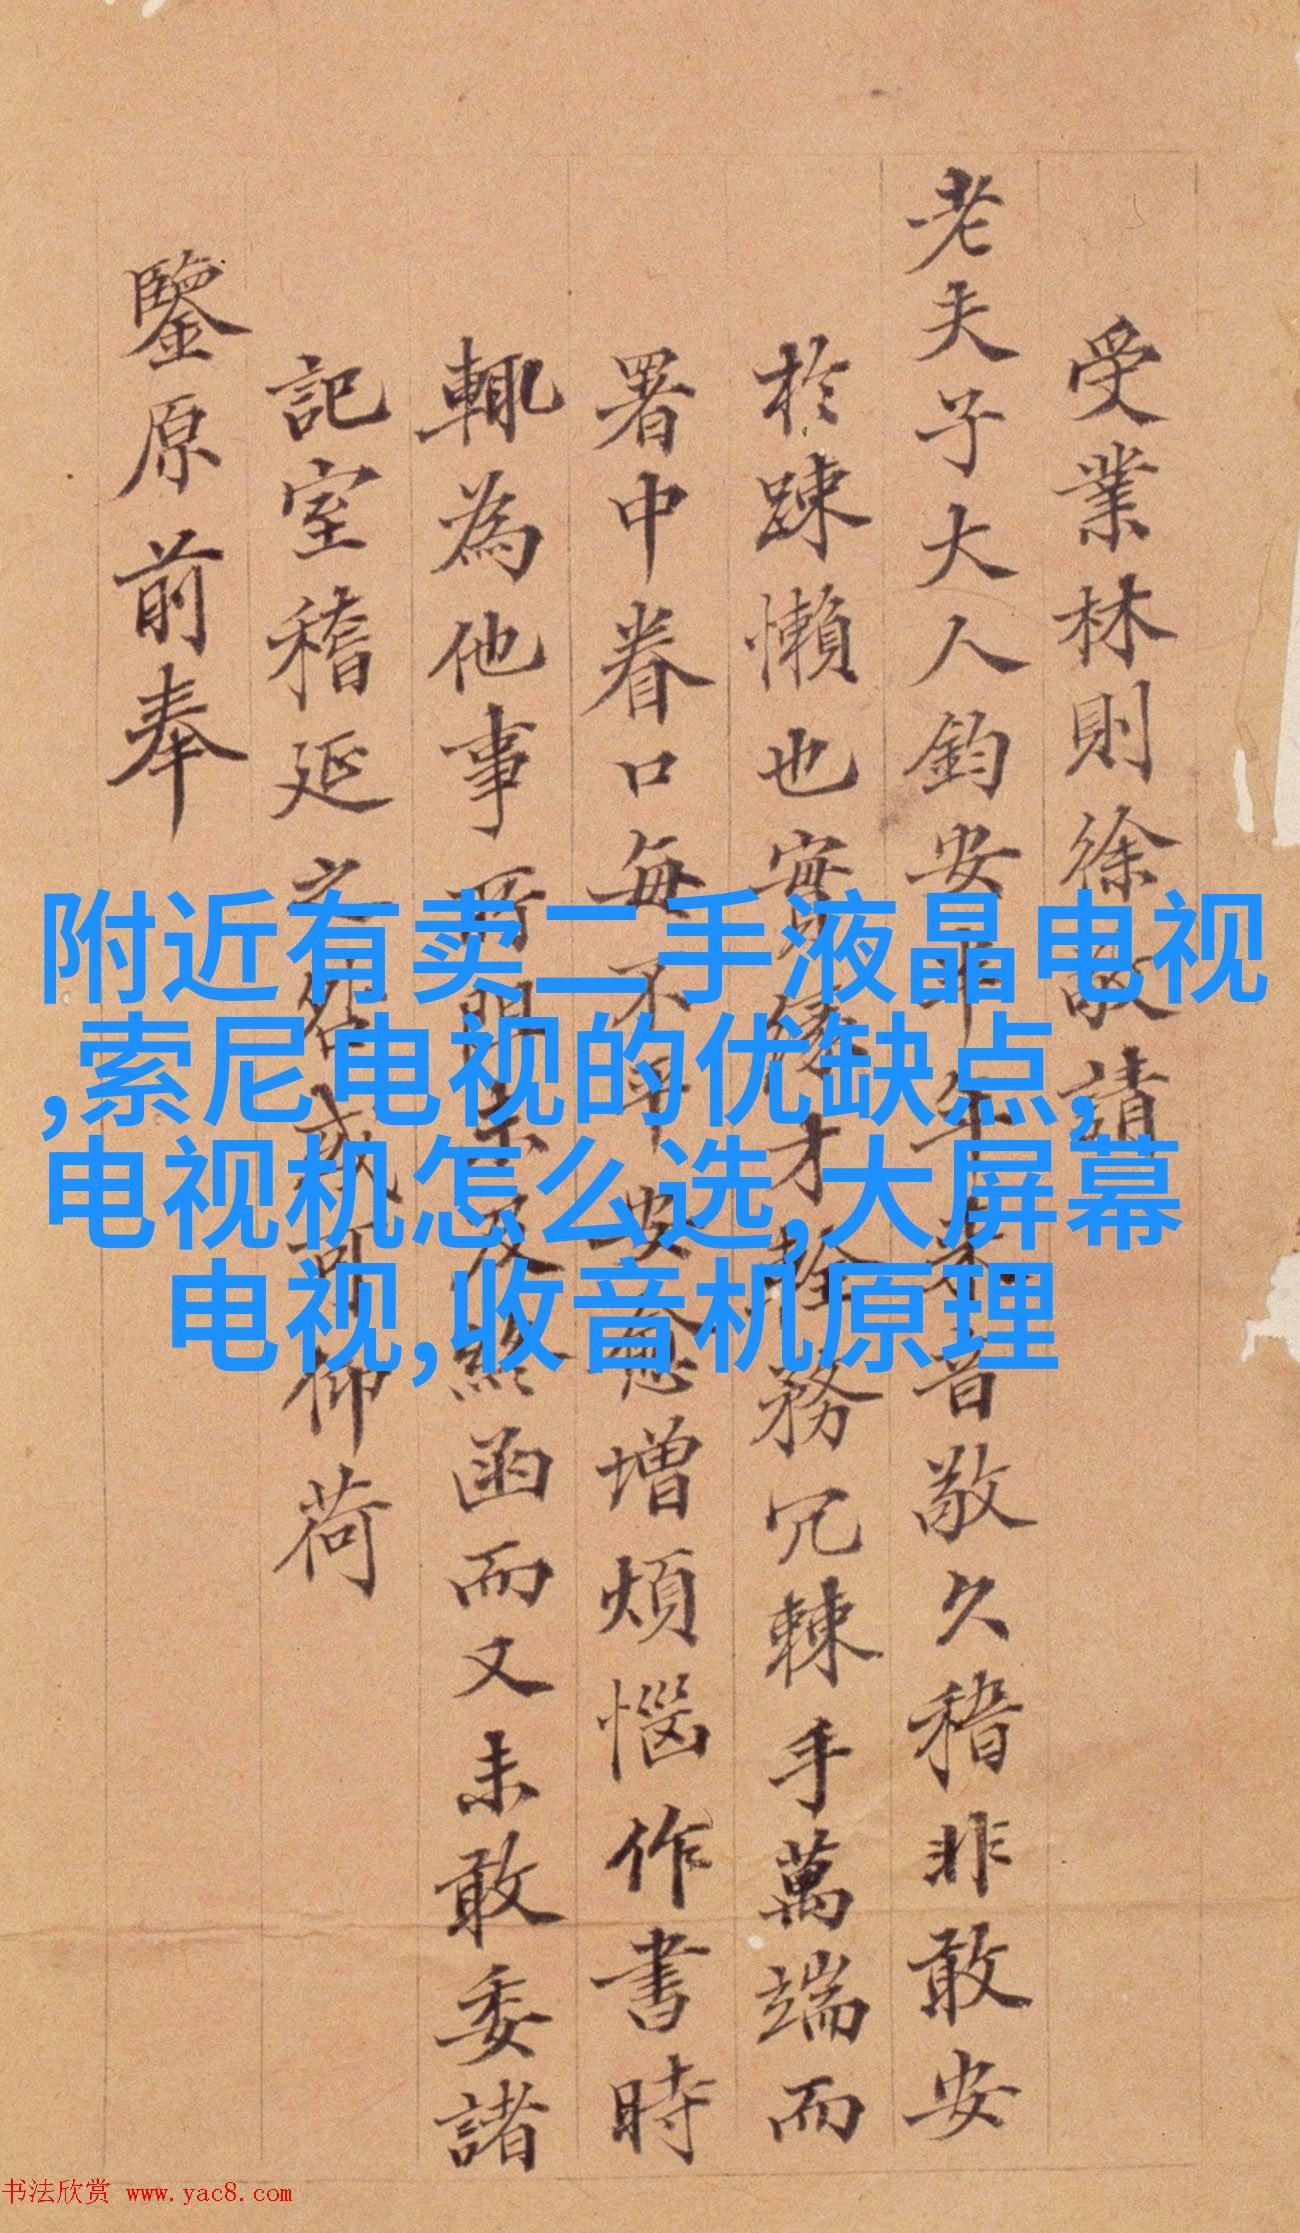 受業林則徐敬請
老夫子大人鈞安半年來音敬久稽非敢安
於踈懶也實緣才輇務冗棘手萬端而
署中眷口每不平安愈增煩惱作書時
輒為他事所阻未及終函而又未敢委諸
記室稽延之咎或可仰荷
鑒原前奉
附近有卖二手液晶电视
,索尼电视的优缺点,
电视机怎么选,大屏幕
电视,收音机原理
书法欣赏 www.yac8.com